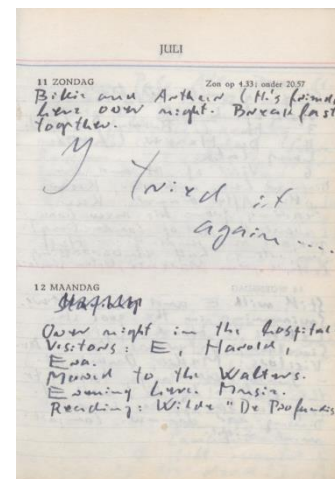 JULI
11 ZONDAG Zon op 4.33; onder 20.57
and Arthur (H's friend)
here over night. Breakfast
together.
Tried it
again....
12 MAANDAG
Over night in the hospital
Visitors: E, Harold,
Eva.
Moved to the Walters.
Evening here Music.
Reading: Wilde "De Profundis